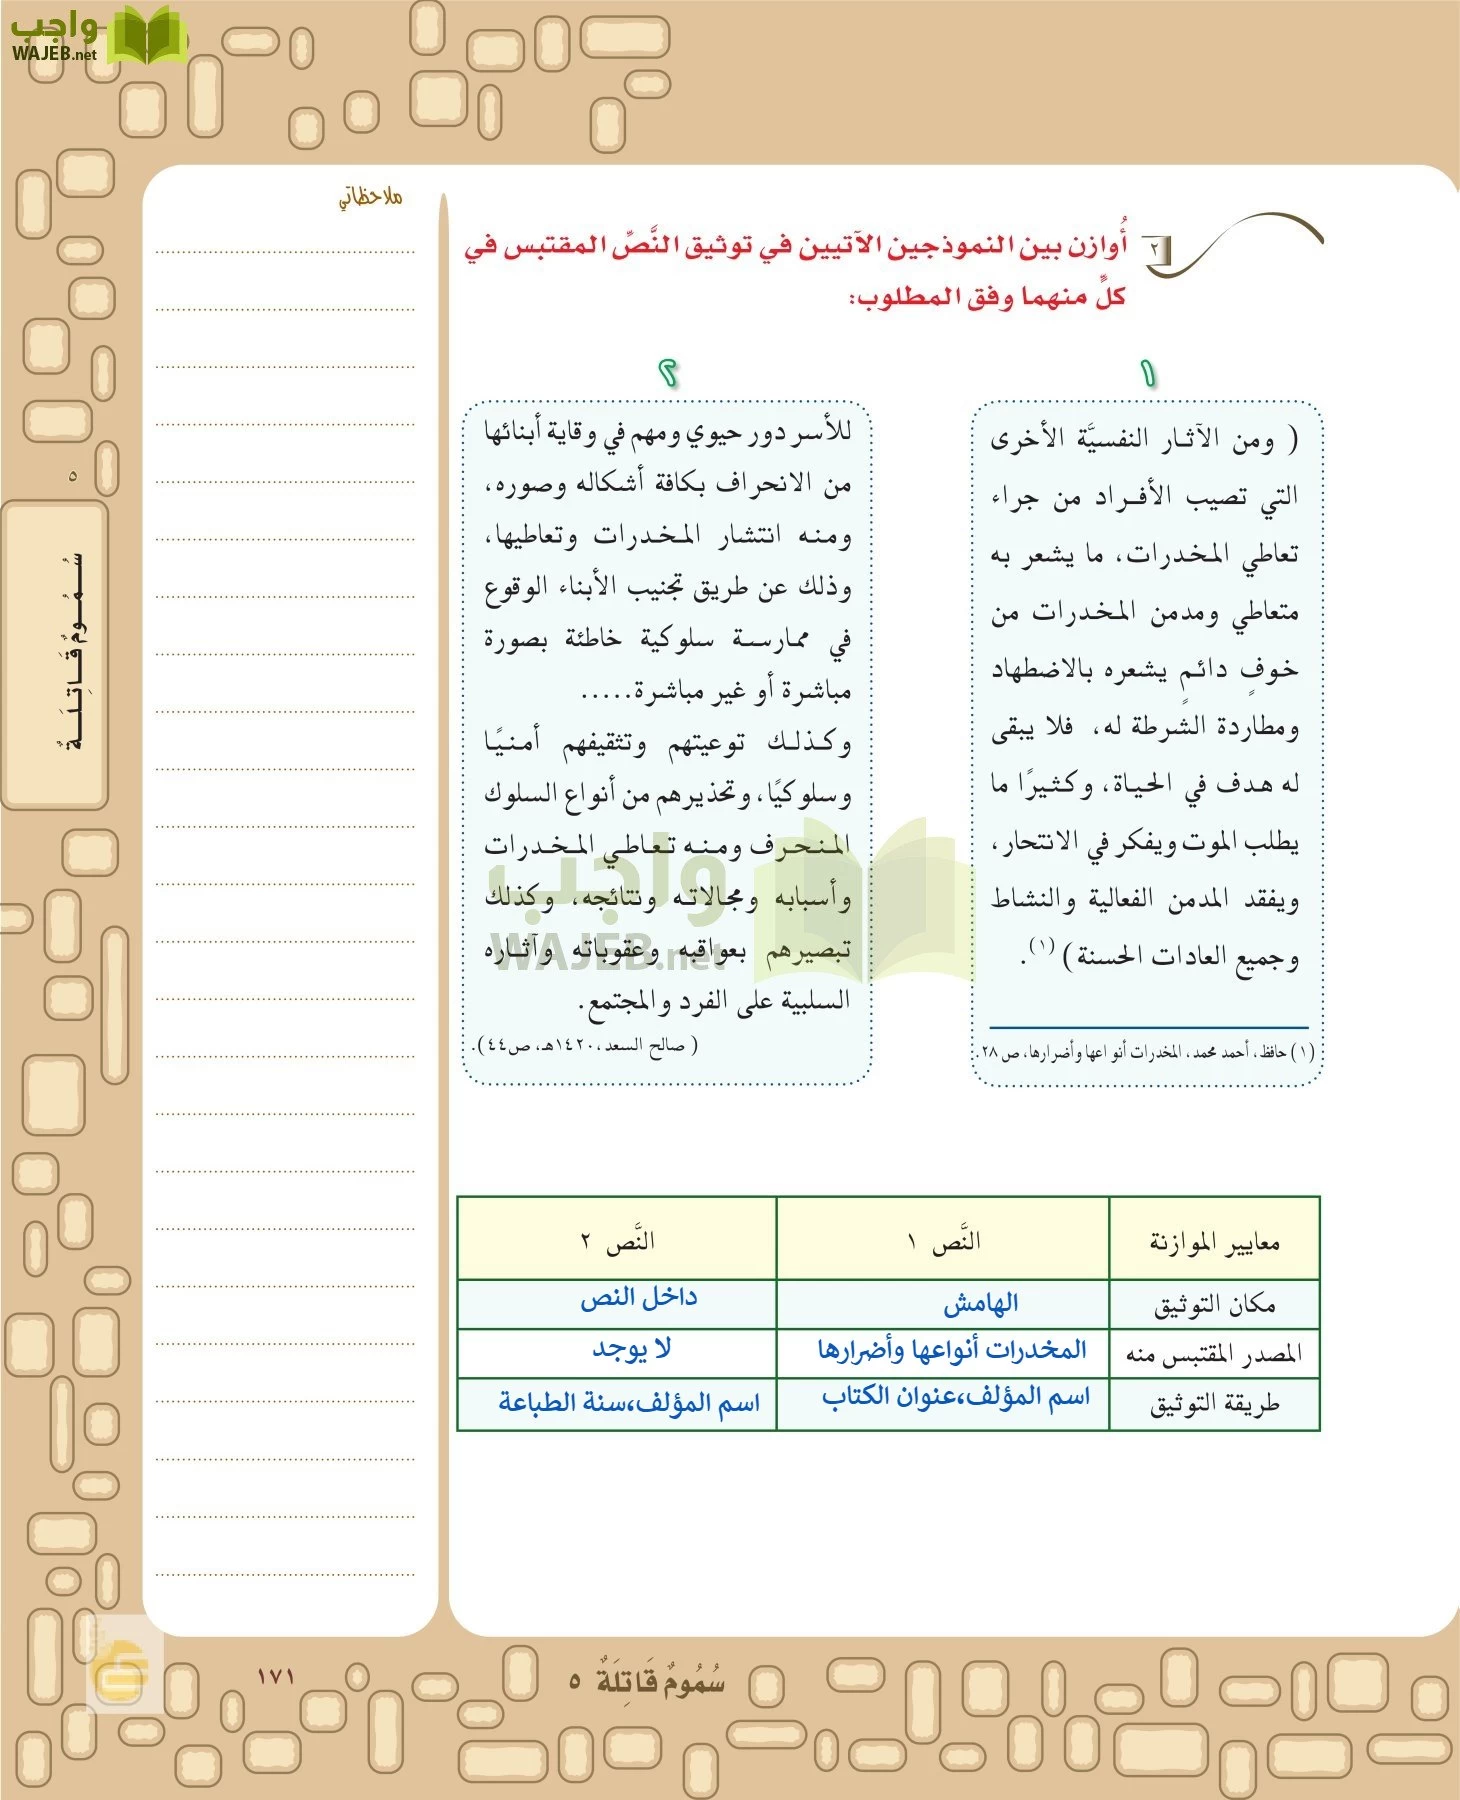 واجب
WAJEB.net
ملاحظاتي
٢
أُوازن بين النموذجين الآتيين في توثيق النَّصِّ المقتبس في
كلٍّ منهما وفق المطلوب:
١
( ومن الآثار النفسيَّة الأخرى
التي تصيب الأفراد من جراء
تعاطي المخدرات، ما يشعر به
متعاطي ومدمن المخدرات من
خوفٍ دائمٍ يشعره بالاضطهاد
ومطاردة الشرطة له، فلا يبقى
له هدف في الحياة، وكثيرًا ما
يطلب الموت ويفكر في الانتحار،
ويفقد المدمن الفعالية والنشاط
وجميع العادات الحسنة) (١).
(١) حافظ، أحمد محمد، المخدرات أنواعها وأضرارها، ص ٢٨.
٢
للأسر دور حيوي ومهم في وقاية أبنائها
من الانحراف بكافة أشكاله وصوره،
ومنه انتشار المخدرات وتعاطيها،
وذلك عن طريق تجنيب الأبناء الوقوع
في ممارسة سلوكية خاطئة بصورة
مباشرة أو غير مباشرة.....
وكذلك توعيتهم وتثقيفهم أمنيًا
وسلوكيًا، وتحذيرهم من أنواع السلوك
المنحرف ومنه تعاطي المخدرات
وأسبابه ومجالاته ونتائجه، وكذلك
تبصيرهم بعواقبه وعقوباته وآثاره
السلبية على الفرد والمجتمع.
( صالح السعد، ١٤٢٠هـ، ص٤٤).
واجب
WAJEB.net
معايير الموازنة النَّص ١ النَّص ٢
مكان التوثيق الهامش داخل النص
المصدر المقتبس منه المخدرات أنواعها وأضرارها لا يوجد
طريقة التوثيق اسم المؤلف،عنوان الكتاب اسم المؤلف،سنة الطباعة
٥
سُمُومٌ قَاتِلَةٌ
سُمُومٌ قَاتِلَةٌ ٥
١٧١